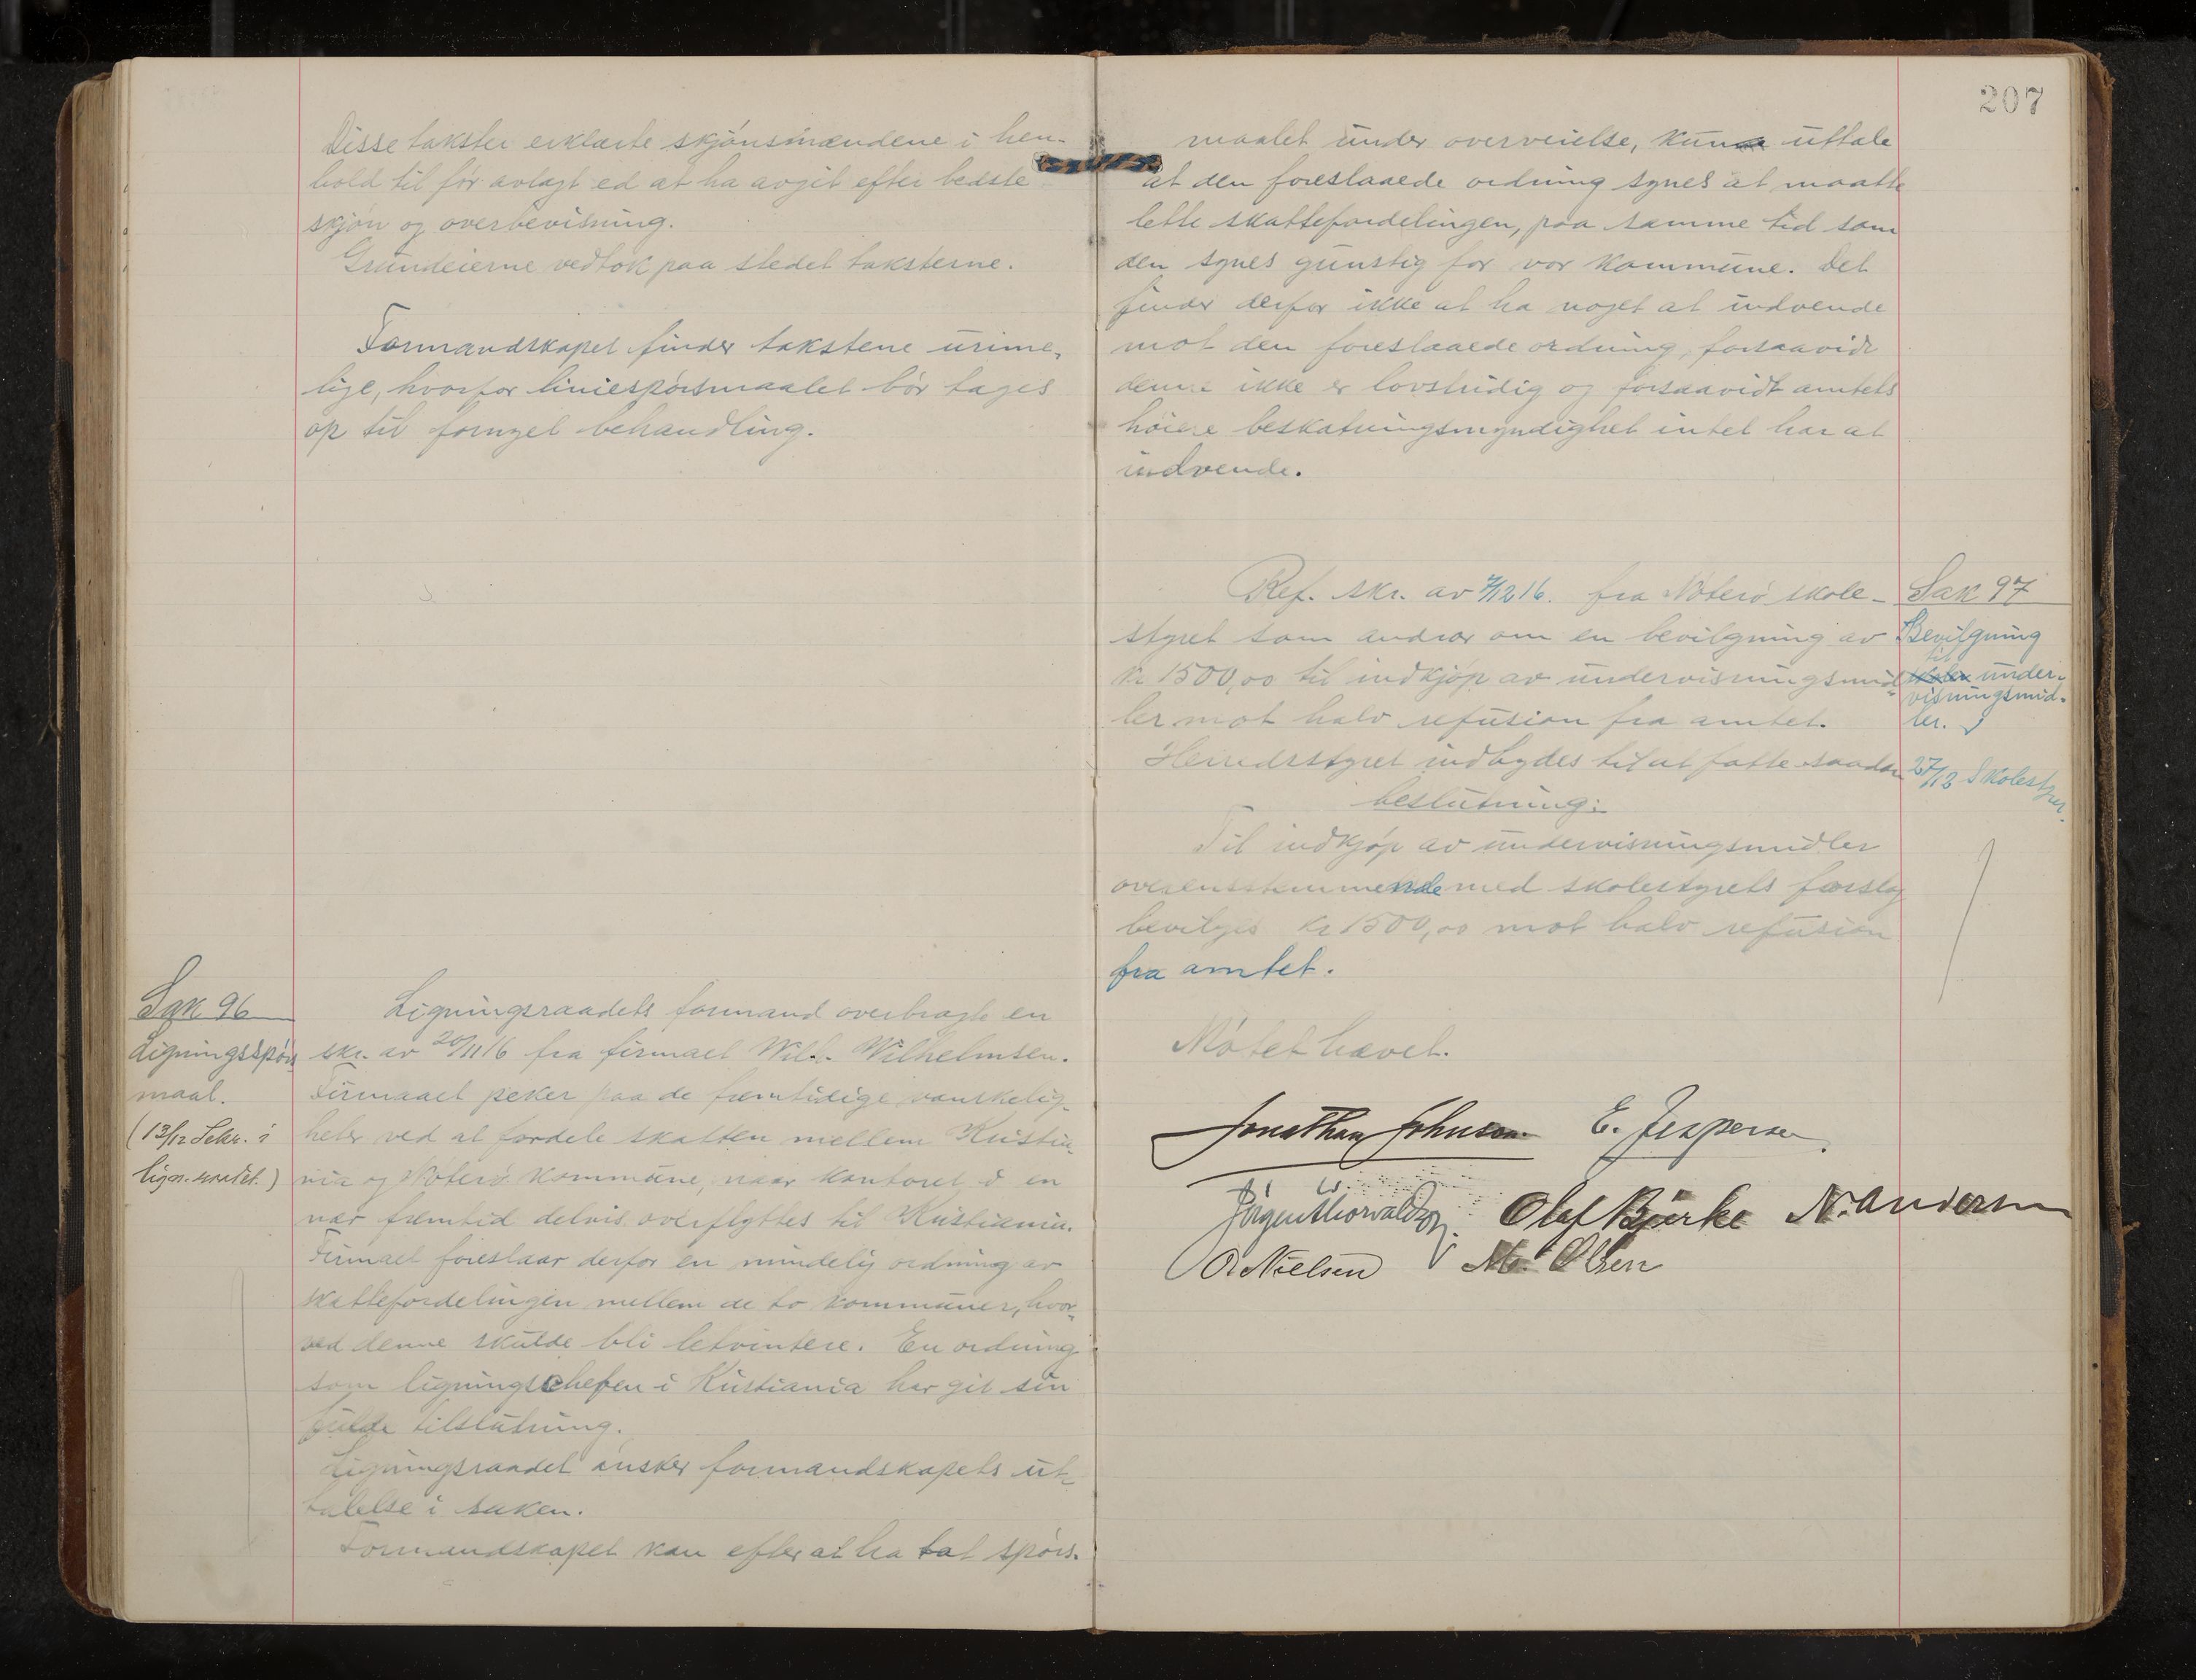 Disse takster erklærte skjönsmændene i hen-
hold til før avlagt ed at ha avgit efter bedste
skjøn og overbevisning.
Grundeierne vedtok paa stedet taksterne.
Formandskapet finder takstene urime-
lige, hvorfor liniespörsmaalet bör tages
op til fornyet behandling.
Sak 96
Ligningsspörs
maal.
(13/12 Sekr. i
Ligningsraadets formand overbragte en
skr. av 20/11 16 fra firmaet Wilh. Wilhelmsen.
Firmaaet peker paa de fremtidige vanskelig-
heter ved at fordele skatten mellem Kristia-
nia og Nøterö kommune, naar kontoret i en
nær fremtid delvis overflyttes til Kristiania.
Firmaet foreslaar derfor en mindelig ordning av
skattefordelingen mellem de to kommuner, hvor-
ved denne skulde bli letvintere. En ordning
som ligningschefen i Kristiania har git sin
fulde tilslutning.
Ligningsraadet önsker formandskapets ut-
talelse i saken.
Formandskapet kan efter at ha tat spörs-
207
maalet under overveielse, kun uttale
at den foreslaaede ordning synes at maatte
lette skattefordelingen, paa samme tid som
den synes gunstig for vor kommune. Det
finder derfor ikke at ha noget at indvende
mot den foreslaaede ordning, forsaavidt
denne ikke er lovstridig og forsaavidt amtets
höiere beskatningsmyndighet intet har at
indvende.
Sak 97
Bevilgning
til
skolen under-
visningsmid-
ler.
27/12 Skolestyret.
Ref. skr. av 7/12 16. fra Nøterö skole-
styret som andrar om en bevilgning av
kr 1500,00 til indkjøp av undervisningsmid-
ler mot halv refusion fra amtet.
Herredsstyret indbydes til at fatte saadan
beslutning:
Til indkjøp av undervisningsmidler
overensstemmende med skolestyrets forslag
bevilges kr 1500,00 mot halv refusion
fra amtet.
Møtet hævet.
Jonathan Johnson E. Jespersen
Jörgen Thorvaldsen Olaf Bjerke N. Andersen
O. Nielsen M. Olsen